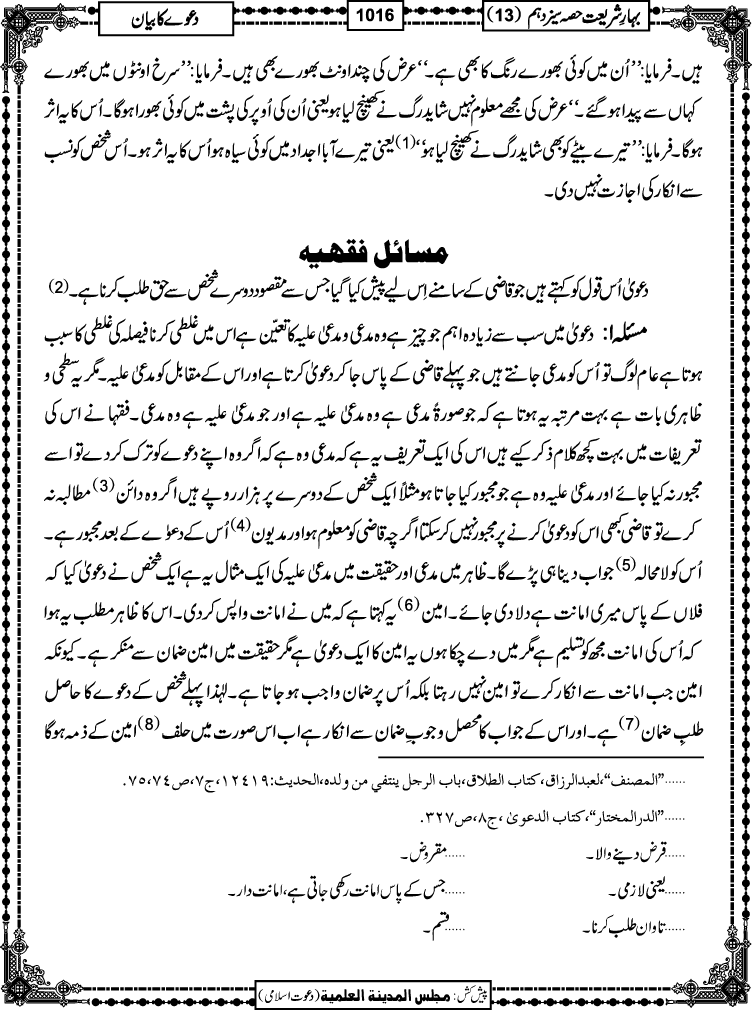 بہارِ شریعت حصہ سیزدہم (13)
1016
دعوے کا بیان
ہیں۔ فرمایا: ’’اُن میں کوئی بھورے رنگ کا بھی ہے۔‘‘ عرض کی چند اونٹ بھورے بھی ہیں۔ فرمایا: ’’سرخ اونٹوں میں بھورے
کہاں سے پیدا ہوگئے۔‘‘ عرض کی مجھے معلوم نہیں شاید رگ نے کھینچ لیا ہو یعنی اُن کی اُوپر کی پشت میں کوئی بھورا ہوگا۔ اُس کا یہ اثر
ہوگا۔ فرمایا: ’’تیرے بیٹے کو بھی شاید رگ نے کھینچ لیا ہو‘‘ (1) یعنی تیرے آبا اجداد میں کوئی سیاہ ہو اُس کا یہ اثر ہو۔ اُس شخص کو نسب
سے انکار کی اجازت نہیں دی۔
مسائل فقهیه
دعویٰ اُس قول کو کہتے ہیں جو قاضی کے سامنے اِس لیے پیش کیا گیا جس سے مقصود دوسرے شخص سے حق طلب کرنا ہے۔ (2)
مسئلہ ۱: دعویٰ میں سب سے زیادہ اہم جو چیز ہے وہ مدعی و مدعیٰ علیہ کا تعیّن ہے اس میں غلطی کرنا فیصلہ کی غلطی کا سبب
ہوتا ہے عام لوگ تو اُس کو مدعی جانتے ہیں جو پہلے قاضی کے پاس جا کر دعویٰ کرتا ہے اور اس کے مقابل کو مدعیٰ علیہ۔ مگر یہ سطحی و
ظاہری بات ہے بہت مرتبہ یہ ہوتا ہے کہ جو صورۃً مدعی ہے وہ مدعیٰ علیہ ہے اور جو مدعیٰ علیہ ہے وہ مدعی۔ فقہا نے اس کی
تعریفات میں بہت کچھ کلام ذکر کیے ہیں اس کی ایک تعریف یہ ہے کہ مدعی وہ ہے کہ اگر وہ اپنے دعوے کو ترک کردے تو اسے
مجبور نہ کیا جائے اور مدعیٰ علیہ وہ ہے جو مجبور کیا جاتا ہو مثلاً ایک شخص کے دوسرے پر ہزار روپے ہیں اگر وہ دائن (3) مطالبہ نہ
کرے تو قاضی کبھی اس کو دعویٰ کرنے پر مجبور نہیں کرسکتا اگرچہ قاضی کو معلوم ہو اور مدیون (4) اُس کے دعوٰے کے بعد مجبور ہے۔
اُس کو لا محالہ (5) جواب دینا ہی پڑے گا۔ ظاہر میں مدعی اور حقیقت میں مدعیٰ علیہ کی ایک مثال یہ ہے ایک شخص نے دعویٰ کیا کہ
فلاں کے پاس میری امانت ہے دلا دی جائے۔ امین (6) یہ کہتا ہے کہ میں نے امانت واپس کردی۔ اس کا ظاہر مطلب یہ ہوا
کہ اُس کی امانت مجھ کو تسلیم ہے مگر میں دے چکا ہوں یہ امین کا ایک دعویٰ ہے مگر حقیقت میں امین ضمان سے منکر ہے۔ کیونکہ
امین جب امانت سے انکار کرے تو امین نہیں رہتا بلکہ اُس پر ضمان واجب ہوجاتا ہے۔ لہٰذا پہلے شخص کے دعوے کا حاصل
طلبِ ضمان (7) ہے۔ اور اس کے جواب کا محصل وجوبِ ضمان سے انکار ہے اب اس صورت میں حلف (8) امین کے ذمہ ہوگا
......”المصنف“، لعبدالرزاق، کتاب الطلاق، باب الرجل ینتفي من ولده، الحدیث:۱۲٤۱۹، ج۷، ص۷٤، ۷۵.
......”الدرالمختار“، کتاب الدعویٰ، ج۸، ص۳۲۷.
......قرض دینے والا۔ ......مقروض۔
......یعنی لازمی۔ ......جس کے پاس امانت رکھی جاتی ہے، امانت دار۔
......تاوان طلب کرنا۔ ......قسم۔
پیش کش: مجلس المدینة العلمیة (دعوت اسلامی)